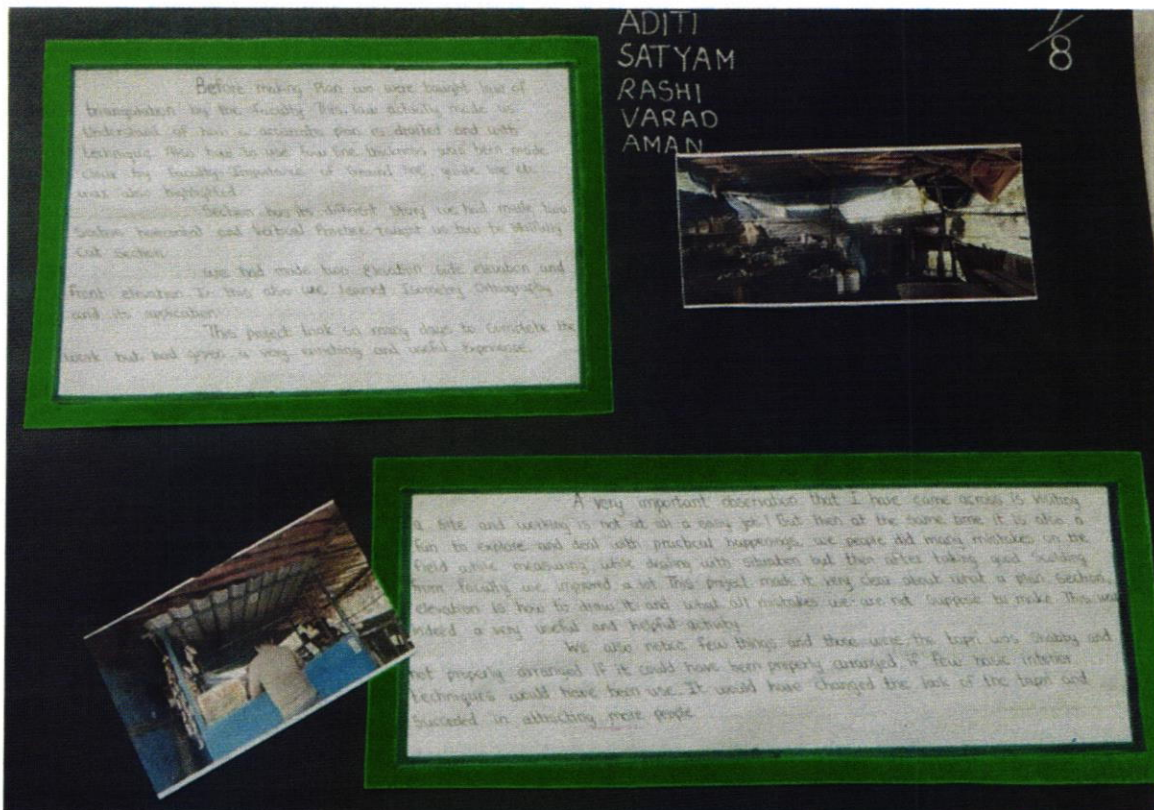 Before making Plan we were taught law of
triangulation by the faculty. This law activity made us
Understand of how a accurate plan is drafted and with
technique. Also how to use few line thickness was been made
clear by faculty. Importance of Ground line, guide line etc
was also highlighted.
Section has its different story we had made two
section horizontal and vertical. Practice taught us how to skillfully
cut section.
We had made two elevation side elevation and
front elevation. In this also we learned Isometry Orthography
and its application.
This project took so many days to complete the
work but had given a very enriching and useful experience.
ADITI
SATYAM
RASHI
VARAD
AMAN
1/8
A very important observation that I have came across is visiting
a site and working is not at all a easy job! But then at the same time it is also a
fun to explore and deal with practical happenings. we people did many mistakes on the
field while measuring while dealing with situation but then after taking good guiding
from faculty we improved a lot. This project made it very clear about what a plan section,
elevation is how to draw it and what all mistakes we are not suppose to make. This was
indeed a very useful and helpful activity.
We also notice few things and those were the tapri was shabby and
not properly arranged. If it could have been properly arranged, if few basic interior
techniques would have been use. It would have changed the look of the tapri and
succeeded in attracting more people.